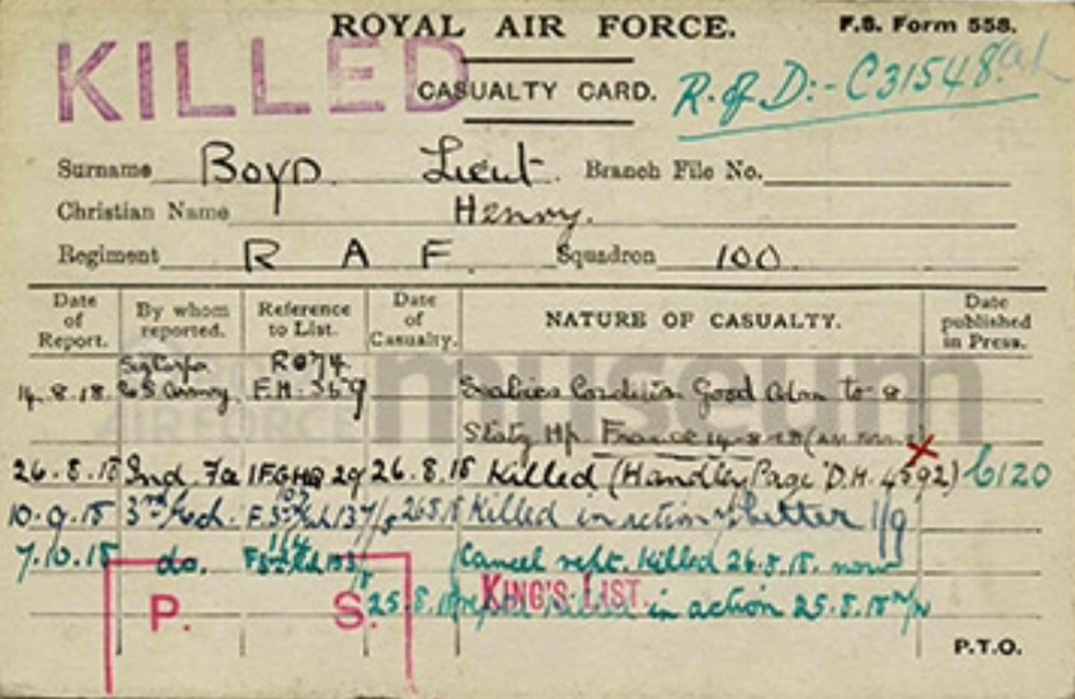 ROYAL AIR FORCE. F.S. Form 558.
KILLED
CASUALTY CARD. R. of D:- C31548
Surname Boyd. Lieut. Branch File No.
Christian Name Henry.
Regiment R A F. Squadron 100
Date of Report. By whom reported. Reference to List. Date of Casualty. NATURE OF CASUALTY. Date published in Press.
museum
AIR FORCE
14.8.18. U.S. Army F.M. Scabies Condition Good Adm to 8
Staty Hp France 14-8-18
26.8.18 Ind. Fce IFGHQ 29 26.8.18 Killed (Handley Page D.H. 4592) 6120
10.9.18 3rd Ech. 26.8.18 Killed in action letter 1/9
7.10.18 do. Cancel rept. Killed 26.8.18. now
P. S. 25.8.18 KING'S LIST. in action 25.8.18
P.T.O.